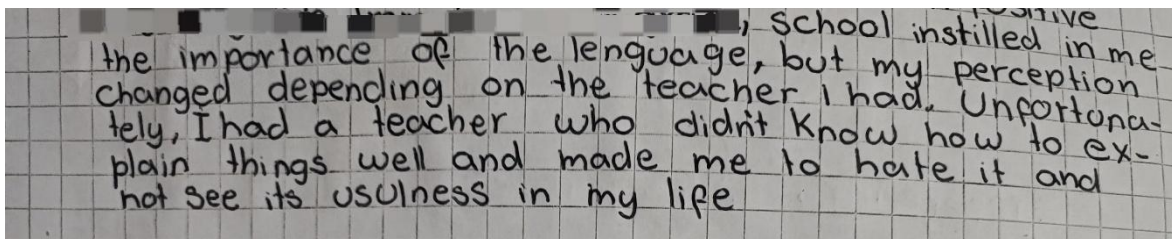 , school instilled in me
the importance of the lenguage, but my perception
changed depending on the teacher I had. Unfortuna-
tely, I had a teacher who didn't know how to ex-
plain things well and made me to hate it and
not see its usulness in my life